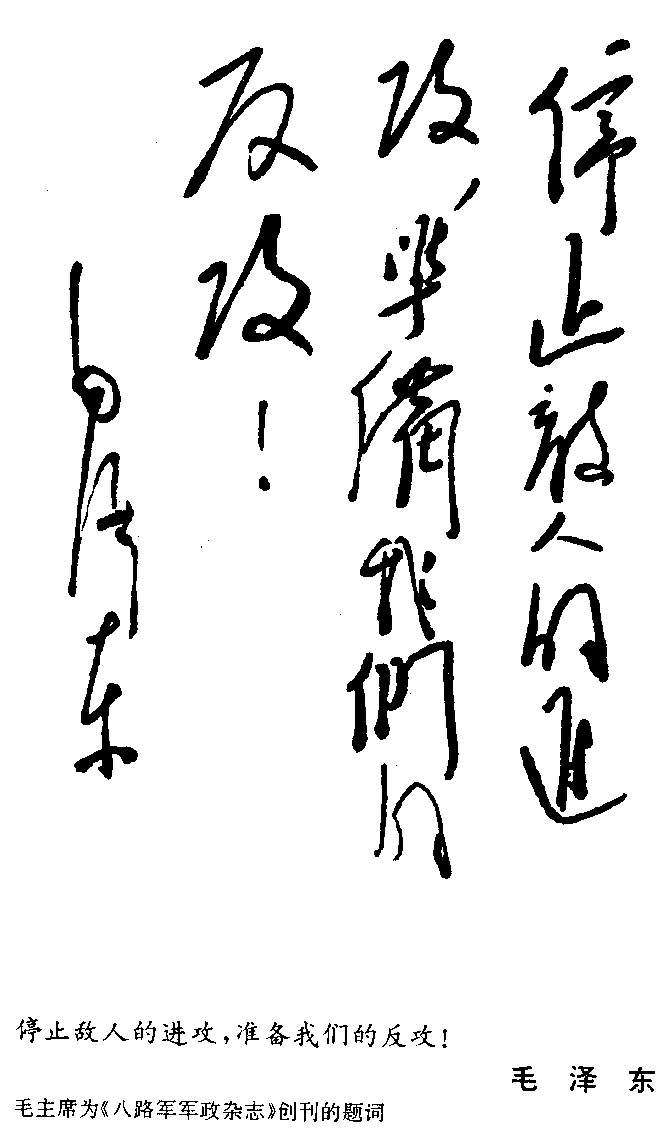 停止敌人的進
攻，準備我們的
反攻！
毛泽东
停止敌人的进攻，准备我们的反攻！
毛泽东
毛主席为《八路军军政杂志》创刊的题词